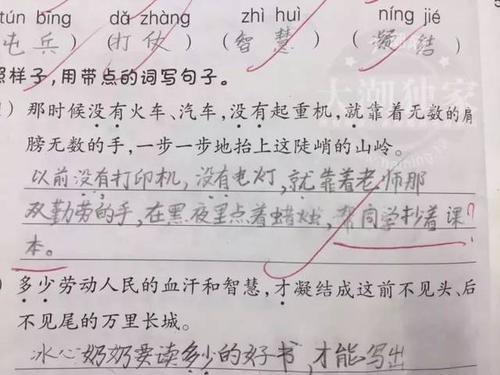 tún bīng dǎ zhàng zhì huì níng jié
(屯兵) (打仗) (智慧) (凝结)
照样子,用带点的词写句子。
) 那时候没有火车、汽车,没有起重机,就靠着无数的肩
膀无数的手,一步一步地抬上这陡峭的山岭。
以前没有打印机,没有电灯,就靠着老师那
双勤劳的手,在黑夜里点着蜡烛,帮同学抄着课
本。
?
) 多少劳动人民的血汗和智慧,才凝结成这前不见头、后
不见尾的万里长城。
冰心奶奶要读多少的好书,才能写出
大潮独家